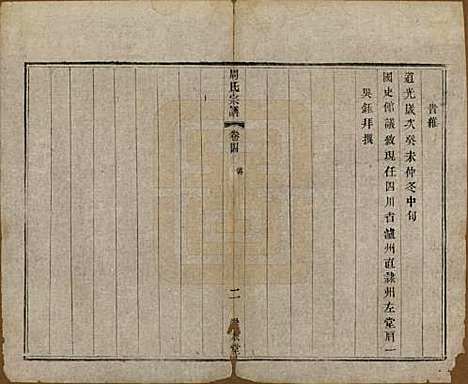 道光歲次癸未仲冬中旬
國史館議敘現任四川省瀘州直隸州左堂眉一
吳鈺拜撰
周氏宗譜
卷四
二
堂